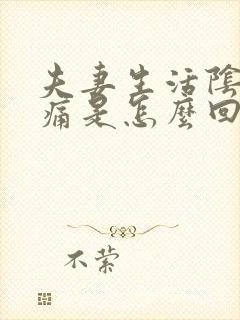 夫妻生活陰
痛是怎麼回
不縈